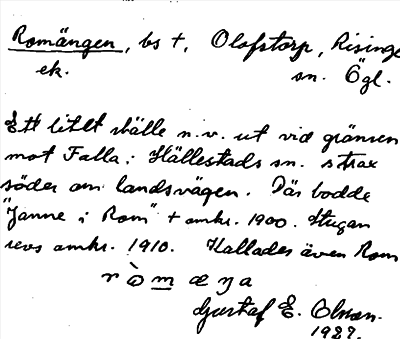 Romängen, bs +, Olofstorp, Risinge
ek. sn. Ögl.
Ett litet ställe n.v. ut vid gränsen
mot Falla i Hällestads sn. strax
söder om landsvägen. Där bodde
"Janne i Rom" + omkr. 1900. Stugan
revs omkr. 1910. Kallades även Rom
Gustaf E. Olsson.
1927.